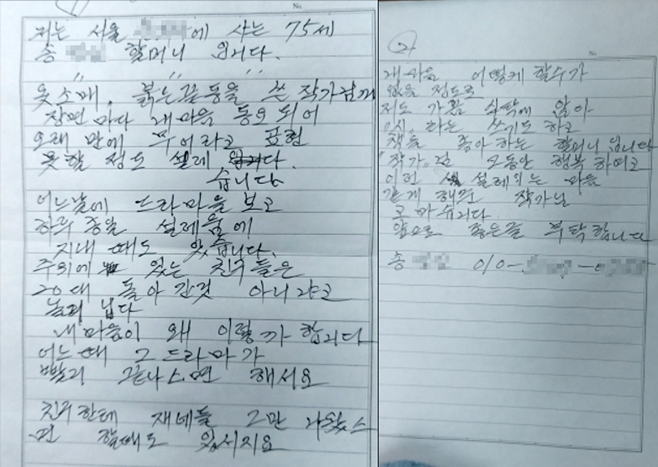 저는 서울 에 사는 75세
송 할머니 입니다.
옷소매, 붉은끝동을 쓴 작가님께
장면 마다 내마음 동요 되어
오래 만에 무어라고 표현
못할 정도 설레
습니다
어느날에 드라마을 보고
하루 종일 설레움에
지내 때도 있습니다.
주위에 있는 친구들은
20대 돌아 간것 아니냐고
놀려 님다
내마음이 왜 이렇가 합니다
어느때 그 드라마가
빨리 끝나스면 해서요
친구한테 쟤네들 그만 나왔스
면 할때도 있시지요
No
2
내 마음 어떻게 할수가
없을 정도로
저도 가끔 식탁에 앉아
시, 라는 쓰기도 하고
책을 좋아 하는 할머니 입니다
작가님 동안 행복 하며고
이런 설레이는 마음
갖게 해준 작가님
고마워니다
앞으로 좋은글 부탁합니다
송 010-
No